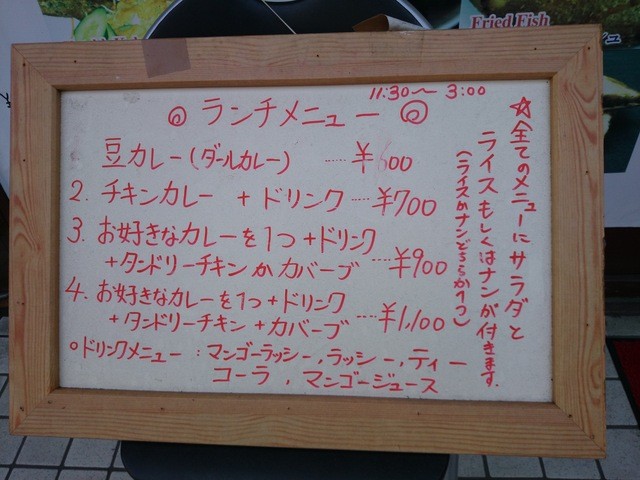 Fried Fish
11:30〜 3:00
◎ ランチメニュー ◎
豆カレー(ダールカレー) ......¥600
2. チキンカレー + ドリンク ....¥700
3. お好きなカレーを1つ +ドリンク
+タンドリーチキン か カバーブ ....¥900
4. お好きなカレーを1つ +ドリンク
+タンドリーチキン +カバーブ ....¥1,100
○ドリンクメニュー : マンゴーラッシー, ラッシー, ティー
コーラ , マンゴージュース
☆全てのメニューにサラダと
ライスもしくはナンが付きます.
(ライスorナンどちらか1つ)